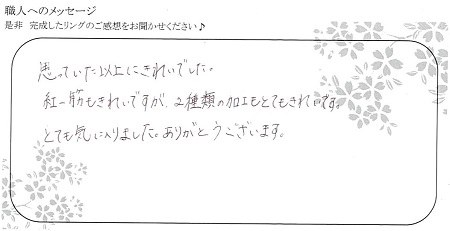 職人へのメッセージ
是非 完成したリングのご感想をお聞かせください♪
思っていた以上にきれいでした。
紅一筋もきれいですが、2種類の加工もとてもきれいです。
とても気に入りました。ありがとうございます。